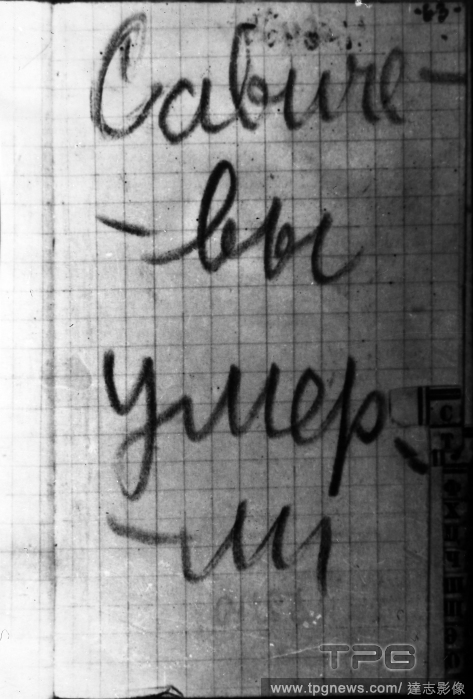 Савиче-
-вы
умер-
-ли
С
Т
TPG
www.tpgnews.com/達志影像